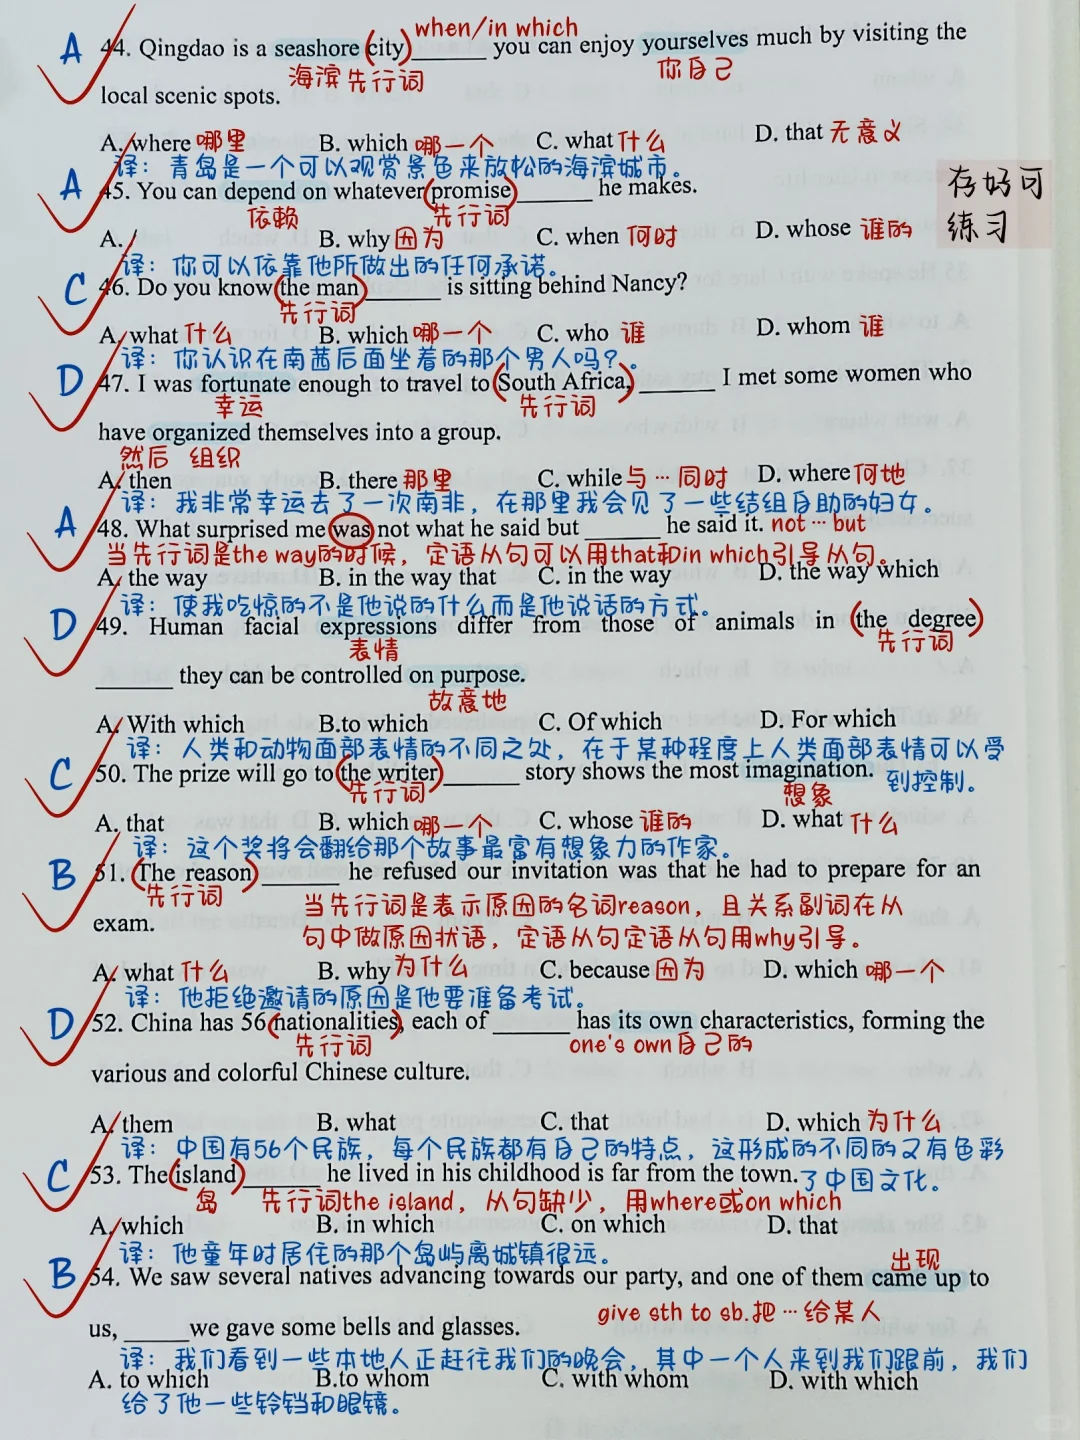 when/in which
A 44. Qingdao is a seashore (city)______ you can enjoy yourselves much by visiting the
海滨 先行词 你自己
local scenic spots.
A. where 哪里 B. which 哪一个 C. what 什么 D. that 无意义
译：青岛是一个可以观赏景色来放松的海滨城市。
存好可
练习
A 45. You can depend on whatever (promise)______ he makes.
依赖 先行词
A. / B. why 因为 C. when 何时 D. whose 谁的
译：你可以依靠他所做出的任何承诺。
C 46. Do you know (the man)______ is sitting behind Nancy?
先行词
A. what 什么 B. which 哪一个 C. who 谁 D. whom 谁
译：你认识在南茜后面坐着的那个男人吗？。
D 47. I was fortunate enough to travel to (South Africa,)______ I met some women who
幸运 先行词
have organized themselves into a group.
然后 组织
A. then B. there 那里 C. while 与…同时 D. where 何地
译：我非常幸运去了一次南非，在那里我会见了一些结组自助的妇女。
A 48. What surprised me was not what he said but ______ he said it. not…but
当先行词是the way的时候，定语从句可以用that和in which引导从句。
A. the way B. in the way that C. in the way D. the way which
译：使我吃惊的不是他说的什么而是他说话的方式。
D 49. Human facial expressions differ from those of animals in (the degree)
表情 先行词
______ they can be controlled on purpose.
故意地
A. With which B.to which C. Of which D. For which
译：人类和动物面部表情的不同之处，在于某种程度上人类面部表情可以受
到控制。
C 50. The prize will go to (the writer)______ story shows the most imagination.
先行词 想象
A. that B. which 哪一个 C. whose 谁的 D. what 什么
译：这个奖将会翻给那个故事最富有想象力的作家。
B 51. (The reason)______ he refused our invitation was that he had to prepare for an
先行词 当先行词是表示原因的名词reason，且关系副词在从
exam.
句中做原因状语，定语从句定语从句用why引导。
A. what 什么 B. why 为什么 C. because 因为 D. which 哪一个
译：他拒绝邀请的原因是他要准备考试。
D 52. China has 56 (nationalities), each of ______ has its own characteristics, forming the
先行词 one's own 自己的
various and colorful Chinese culture.
A. them B. what C. that D. which 为什么
译：中国有56个民族，每个民族都有自己的特点，这形成的不同的又有色彩
了中国文化。
C 53. The (island)______ he lived in his childhood is far from the town.
岛 先行词the island，从句缺少，用where或on which
A. which B. in which C. on which D. that
译：他童年时居住的那个岛屿离城镇很远。
出现
B 54. We saw several natives advancing towards our party, and one of them came up to
give sth to sb.把…给某人
us, ______we gave some bells and glasses.
译：我们看到一些本地人正赶往我们的晚会，其中一个人来到我们跟前，我们
A. to which B.to whom C. with whom D. with which
给了他一些铃铛和眼镜。